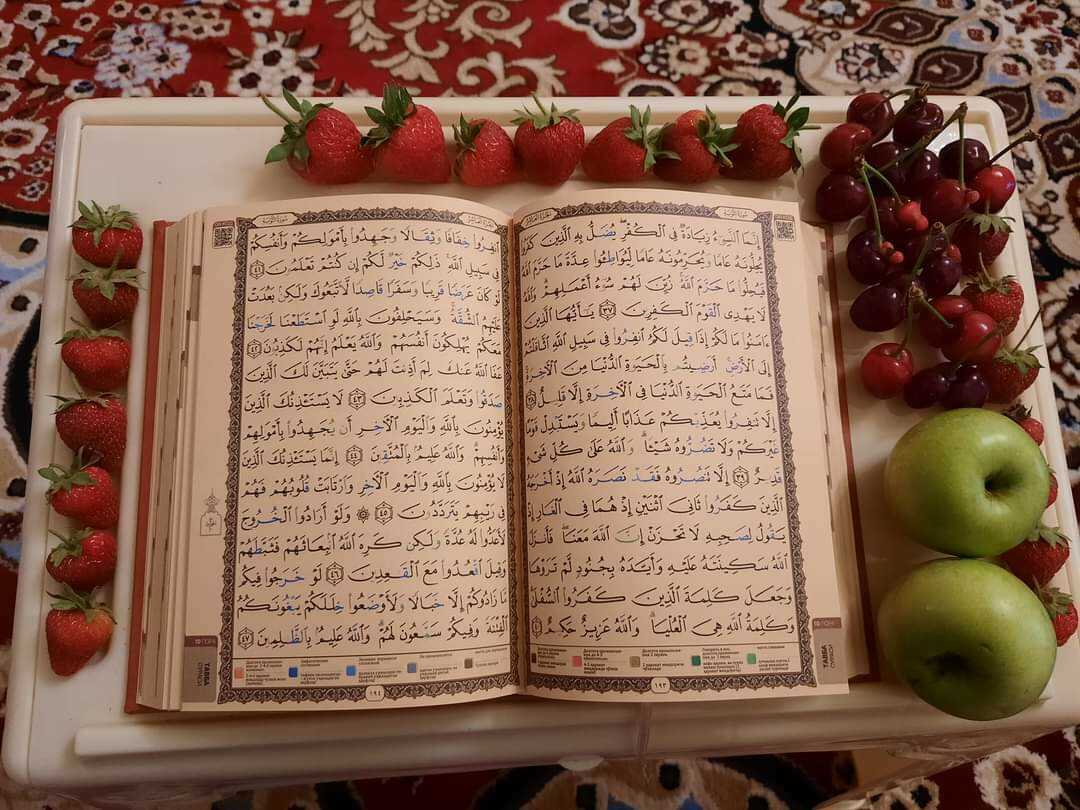 سُورَةُ التَّوْبَةِ
الجُزْءُ العَاشِرُ
إِنَّمَا ٱلنَّسِىٓءُ زِيَادَةٌ فِى ٱلْكُفْرِ ۖ يُضَلُّ بِهِ ٱلَّذِينَ كَفَرُوا۟
يُحِلُّونَهُۥ عَامًا وَيُحَرِّمُونَهُۥ عَامًا لِّيُوَاطِـُٔوا۟ عِدَّةَ مَا حَرَّمَ ٱللَّهُ
فَيُحِلُّوا۟ مَا حَرَّمَ ٱللَّهُ ۚ زُيِّنَ لَهُمْ سُوٓءُ أَعْمَٰلِهِمْ ۗ وَٱللَّهُ
لَا يَهْدِى ٱلْقَوْمَ ٱلْكَٰفِرِينَ ٣٧ يَٰٓأَيُّهَا ٱلَّذِينَ
ءَامَنُوا۟ مَا لَكُمْ إِذَا قِيلَ لَكُمُ ٱنفِرُوا۟ فِى سَبِيلِ ٱللَّهِ ٱثَّاقَلْتُمْ
إِلَى ٱلْأَرْضِ ۚ أَرَضِيتُم بِٱلْحَيَوٰةِ ٱلدُّنْيَا مِنَ ٱلْءَاخِرَةِ ۚ
فَمَا مَتَٰعُ ٱلْحَيَوٰةِ ٱلدُّنْيَا فِى ٱلْءَاخِرَةِ إِلَّا قَلِيلٌ ٣٨
إِلَّا تَنفِرُوا۟ يُعَذِّبْكُمْ عَذَابًا أَلِيمًا وَيَسْتَبْدِلْ قَوْمًا
غَيْرَكُمْ وَلَا تَضُرُّوهُ شَيْـًٔا ۗ وَٱللَّهُ عَلَىٰ كُلِّ شَىْءٍ
قَدِيرٌ ٣٩ إِلَّا تَنصُرُوهُ فَقَدْ نَصَرَهُ ٱللَّهُ إِذْ أَخْرَجَهُ
ٱلَّذِينَ كَفَرُوا۟ ثَانِىَ ٱثْنَيْنِ إِذْ هُمَا فِى ٱلْغَارِ إِذْ
يَقُولُ لِصَٰحِبِهِۦ لَا تَحْزَنْ إِنَّ ٱللَّهَ مَعَنَا ۖ فَأَنزَلَ
ٱللَّهُ سَكِينَتَهُۥ عَلَيْهِ وَأَيَّدَهُۥ بِجُنُودٍ لَّمْ تَرَوْهَا
وَجَعَلَ كَلِمَةَ ٱلَّذِينَ كَفَرُوا۟ ٱلسُّفْلَىٰ ۗ
وَكَلِمَةُ ٱللَّهِ هِىَ ٱلْعُلْيَا ۗ وَٱللَّهُ عَزِيزٌ حَكِيمٌ ٤٠
١٩٣
10 ПОРА
ТАВБА
СУРАСИ
سُورَةُ التَّوْبَةِ
الجُزْءُ العَاشِرُ
ٱنفِرُوا۟ خِفَافًا وَثِقَالًا وَجَٰهِدُوا۟ بِأَمْوَٰلِكُمْ وَأَنفُسِكُمْ
فِى سَبِيلِ ٱللَّهِ ۚ ذَٰلِكُمْ خَيْرٌ لَّكُمْ إِن كُنتُمْ تَعْلَمُونَ ٤١
لَوْ كَانَ عَرَضًا قَرِيبًا وَسَفَرًا قَاصِدًا لَّٱتَّبَعُوكَ وَلَٰكِنۢ بَعُدَتْ
عَلَيْهِمُ ٱلشُّقَّةُ ۚ وَسَيَحْلِفُونَ بِٱللَّهِ لَوِ ٱسْتَطَعْنَا لَخَرَجْنَا
مَعَكُمْ يُهْلِكُونَ أَنفُسَهُمْ وَٱللَّهُ يَعْلَمُ إِنَّهُمْ لَكَٰذِبُونَ ٤٢
عَفَا ٱللَّهُ عَنكَ لِمَ أَذِنتَ لَهُمْ حَتَّىٰ يَتَبَيَّنَ لَكَ ٱلَّذِينَ
صَدَقُوا۟ وَتَعْلَمَ ٱلْكَٰذِبِينَ ٤٣ لَا يَسْتَـْٔذِنُكَ ٱلَّذِينَ
يُؤْمِنُونَ بِٱللَّهِ وَٱلْيَوْمِ ٱلْءَاخِرِ أَن يُجَٰهِدُوا۟ بِأَمْوَٰلِهِمْ
وَأَنفُسِهِمْ ۗ وَٱللَّهُ عَلِيمٌۢ بِٱلْمُتَّقِينَ ٤٤ إِنَّمَا يَسْتَـْٔذِنُكَ ٱلَّذِينَ
لَا يُؤْمِنُونَ بِٱللَّهِ وَٱلْيَوْمِ ٱلْءَاخِرِ وَٱرْتَابَتْ قُلُوبُهُمْ فَهُمْ
فِى رَيْبِهِمْ يَتَرَدَّدُونَ ٤٥ ۞ وَلَوْ أَرَادُوا۟ ٱلْخُرُوجَ
لَأَعَدُّوا۟ لَهُۥ عُدَّةً وَلَٰكِن كَرِهَ ٱللَّهُ ٱنۢبِعَاثَهُمْ فَثَبَّطَهُمْ
وَقِيلَ ٱقْعُدُوا۟ مَعَ ٱلْقَٰعِدِينَ ٤٦ لَوْ خَرَجُوا۟ فِيكُم
مَّا زَادُوكُمْ إِلَّا خَبَالًا وَلَأَوْضَعُوا۟ خِلَٰلَكُمْ يَبْغُونَكُمُ
ٱلْفِتْنَةَ وَفِيكُمْ سَمَّٰعُونَ لَهُمْ ۗ وَٱللَّهُ عَلِيمٌۢ بِٱلظَّٰلِمِينَ ٤٧
١٩٤
10 ПОРА
ТАВБА
СУРАСИ